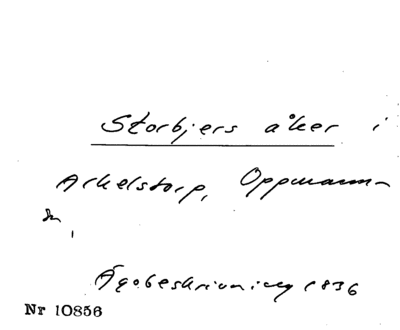 Storbjers åker i
Arkelstorp, Oppmann-
sn,
Ägobeskrivning 1836
Nr 10856